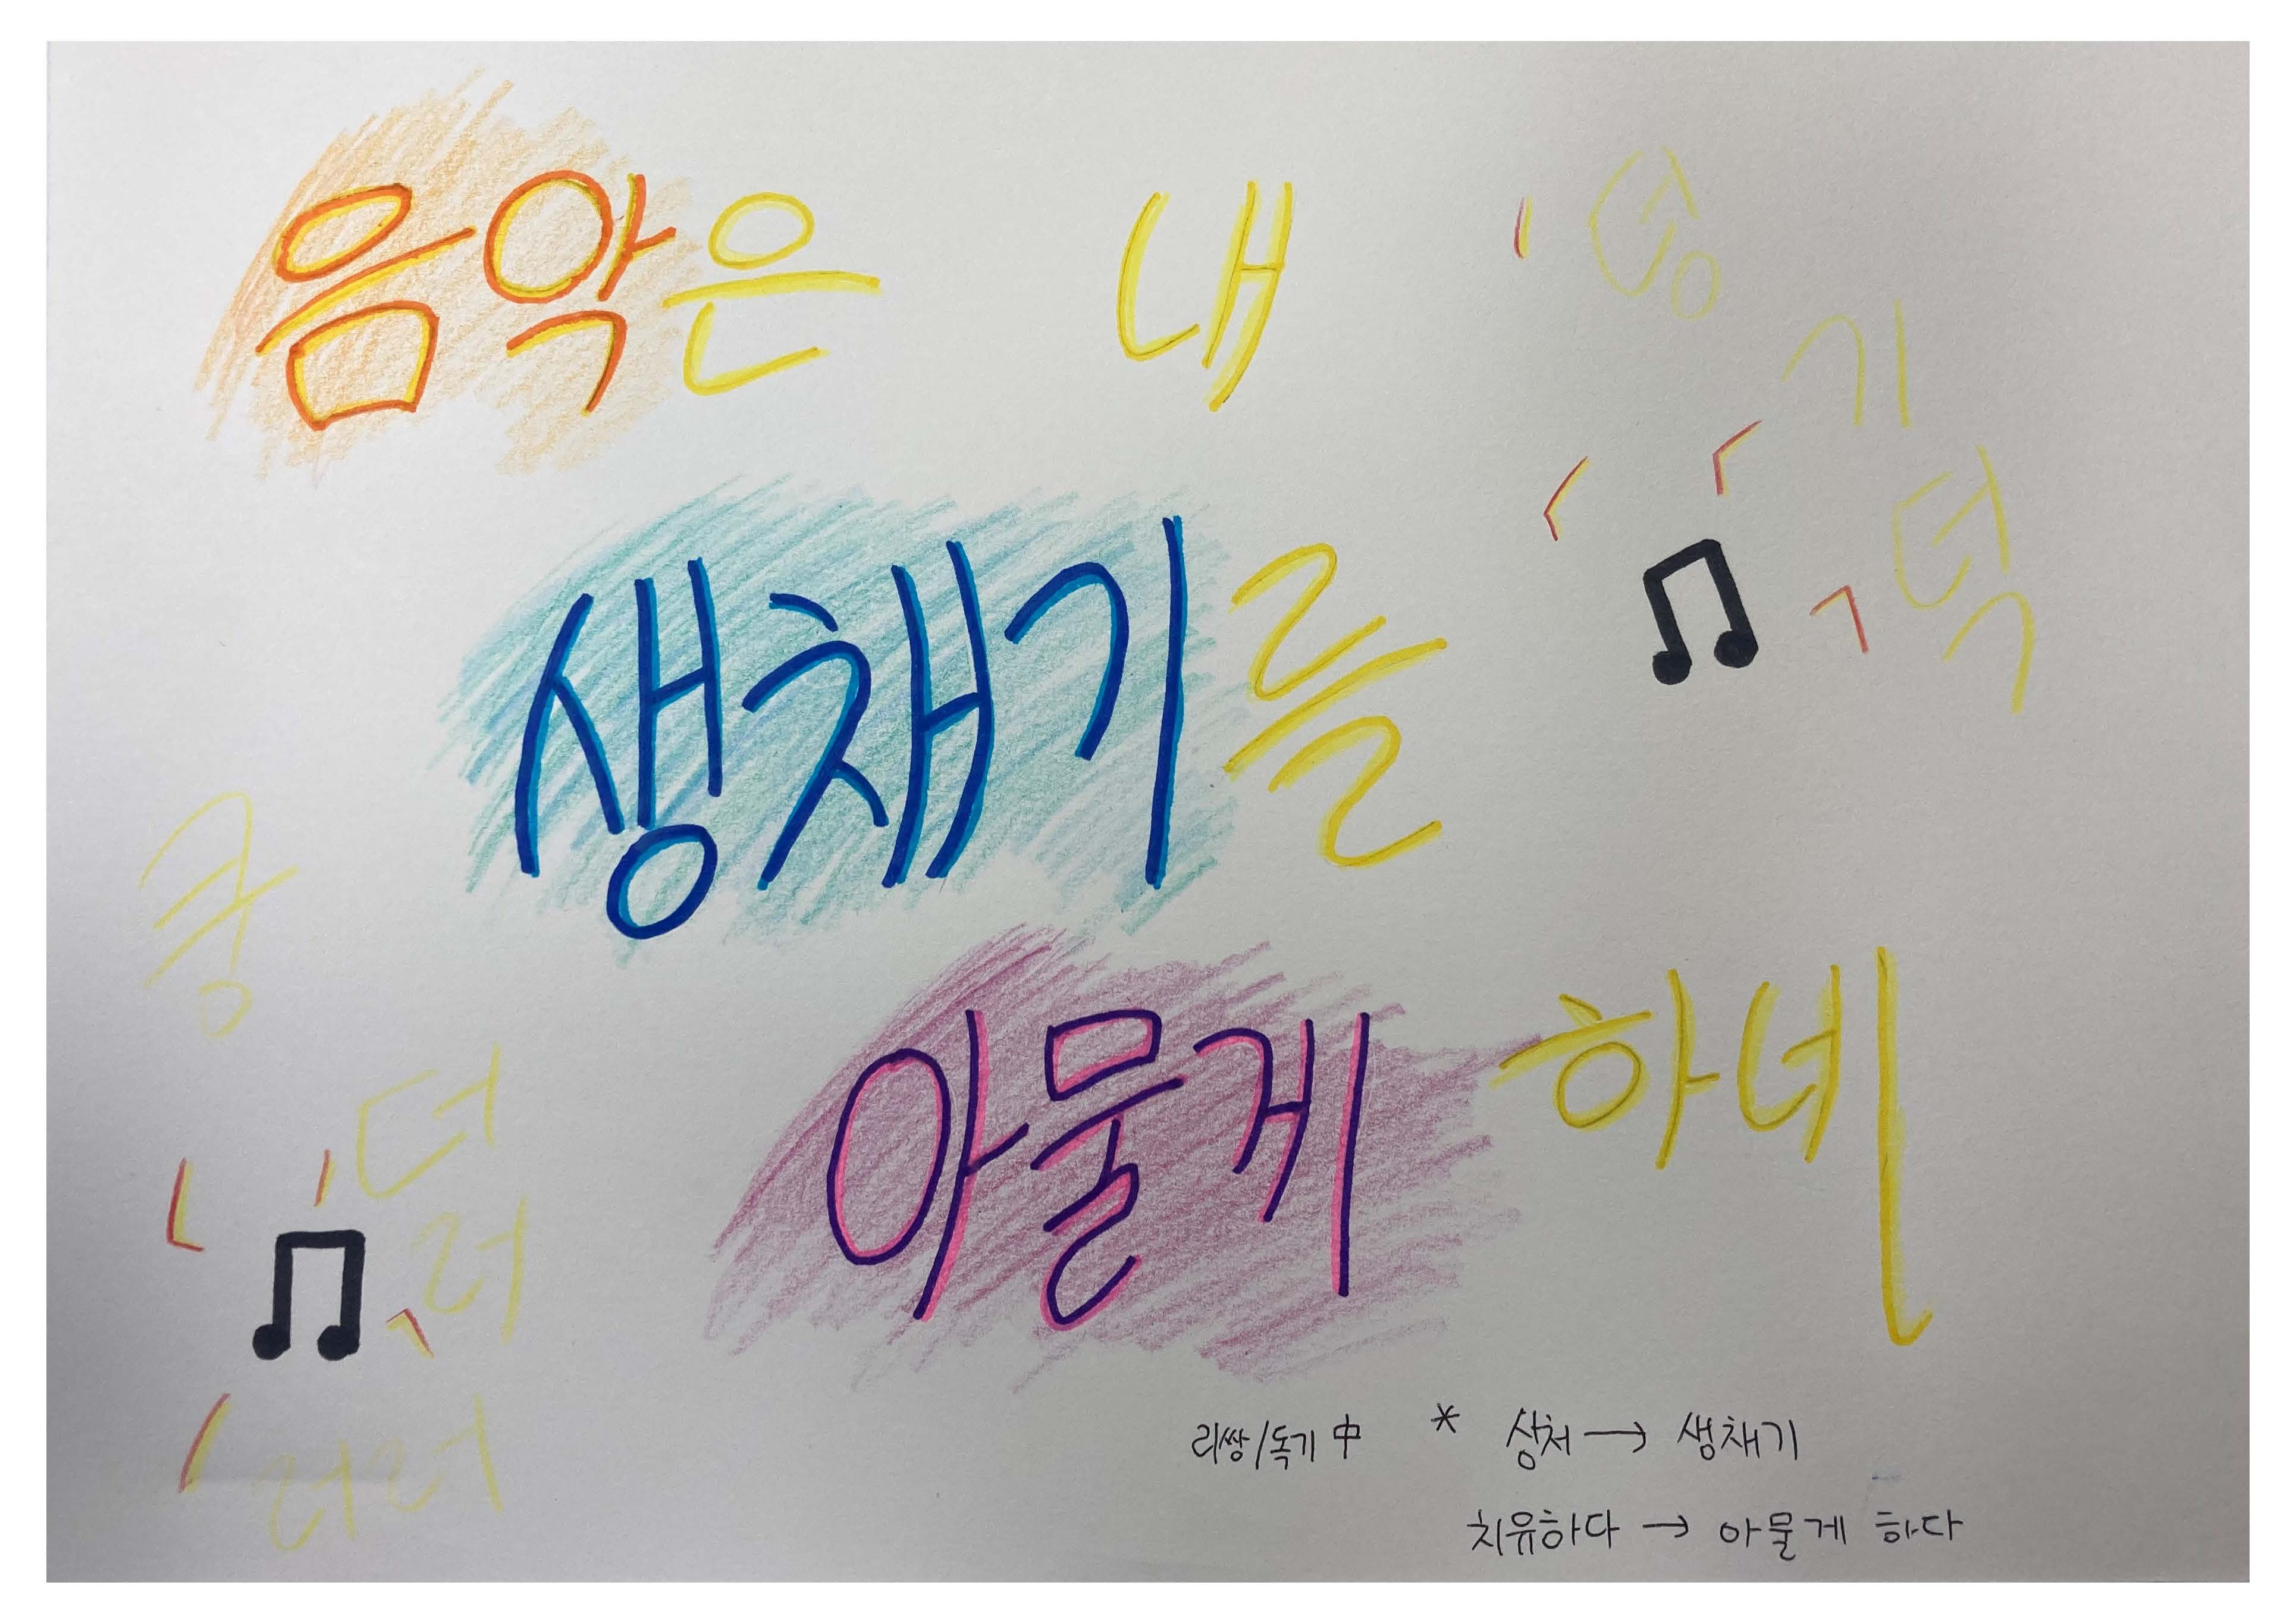 음악은 내
생채기를
아물게 하네
덩
기
덕
쿵
더
러
러러
리쌍/독기 中 * 상처 → 생채기
치유하다 → 아물게 하다